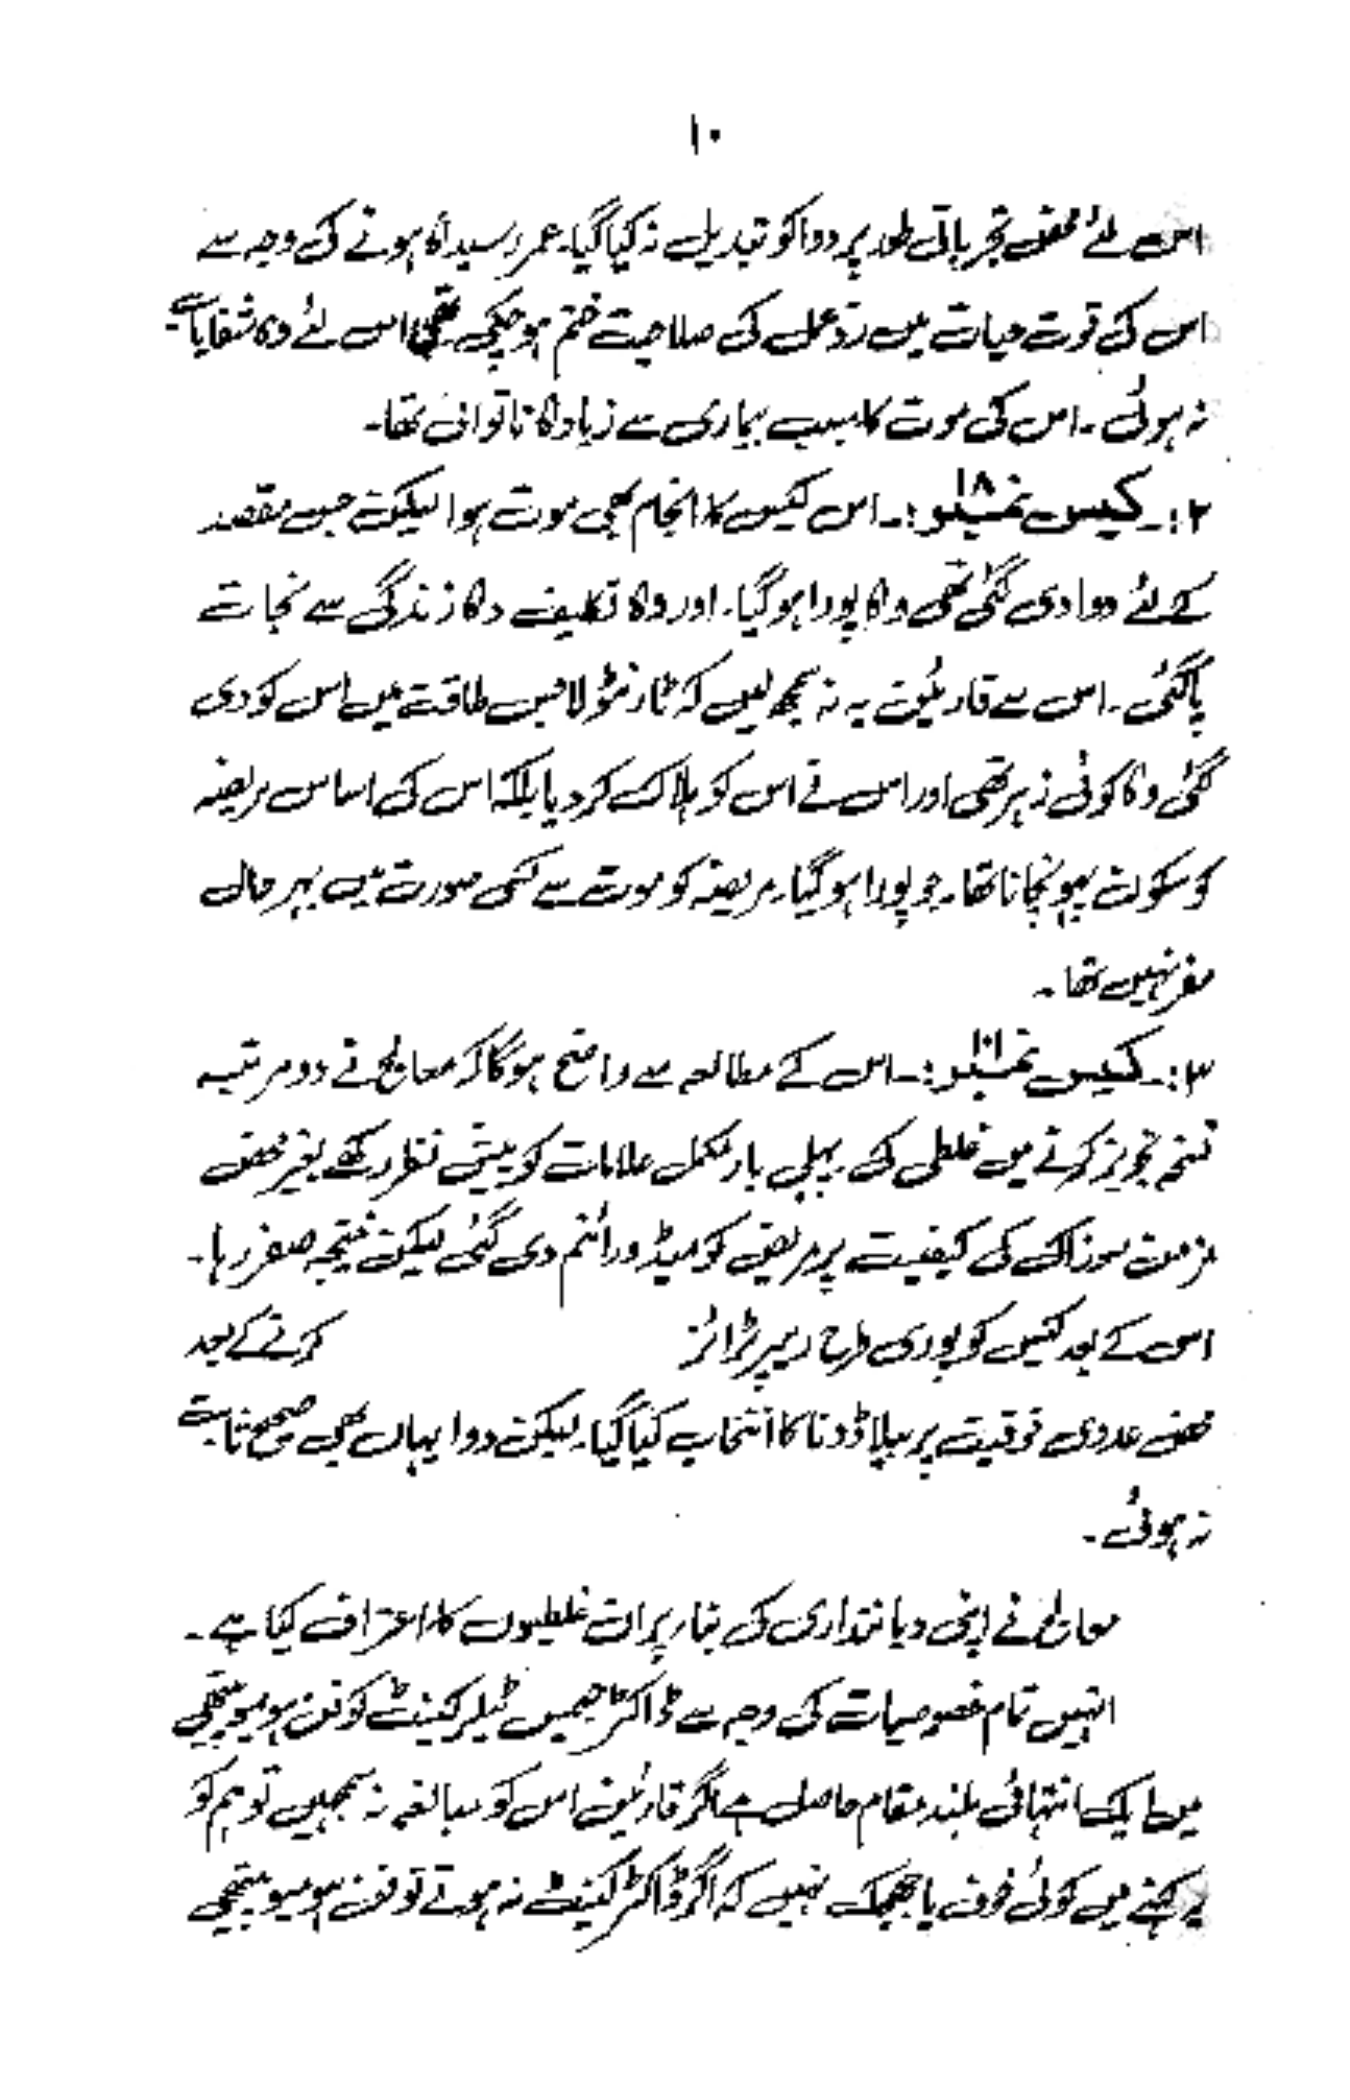 ۱۰
اس لئے محض تجرباتی طور پر دوا کو تبدیل نہ کیا گیا۔ عمر رسیدہ ہونے کی وجہ سے
اس کی قوت حیات میں ردّعمل کی صلاحیت ختم ہو چکی تھی اس لئے وہ شفایاب
نہ ہوئی۔ اس کی موت کا سبب بیماری سے زیادہ ناتوانی تھا۔
۲:۔ کیس نمبر ۱۸:۔ اس کیس کا انجام بھی موت ہوا لیکن جس مقصد
کے لئے دوا دی گئی تھی وہ پورا ہو گیا۔ اور وہ تکلیف دہ زندگی سے نجات
پا گئی۔ اس سے قارئین یہ نہ سمجھ لیں کہ ٹارنٹولا جس طاقت میں اس کو دی
گئی وہ کوئی زہر تھی اور اس نے اس کو ہلاک کر دیا بلکہ اس کی اساس مریضہ
کو سکون پہونچانا تھا۔ جو پورا ہو گیا۔ مریضہ کو موت سے کسی صورت میں بہر حال
مفر نہیں تھا۔
۳:۔ کیس نمبر ۱۰۱:۔ اس کے مطالعہ سے واضح ہوگا کہ معالج نے دو مرتبہ
نسخہ تجویز کرنے میں غلطی کی پہلی بار مکمل علامات کو پیش نظر رکھے بغیر محض
مزمن سوزاک کی کیفیت پر مریض کو میڈورائنم دی گئی لیکن نتیجہ صفر رہا۔
اس کے بعد کیس کو پوری طرح ریپرٹرائز کرنے کے بعد
محض عددی فوقیت پر بیلاڈونا کا انتخاب کیا گیا۔ لیکن دوا یہاں بھی صحیح ثابت
نہ ہوئی۔
معالج نے اپنی دیانتداری کی بناء پر ان غلطیوں کا اعتراف کیا ہے۔
انہیں تمام خصوصیات کی وجہ سے ڈاکٹر جیمس ٹیلر کینٹ کو فن ہومیوپیتھی
میں ایک انتہائی بلند مقام حاصل ہے اگر قارئین اس کو مبالغہ نہ سمجھیں تو ہم کو
یہ کہنے میں کوئی خوف یا جھجک نہیں کہ اگر ڈاکٹر کینٹ نہ ہوتے تو فن ہومیوپیتھی